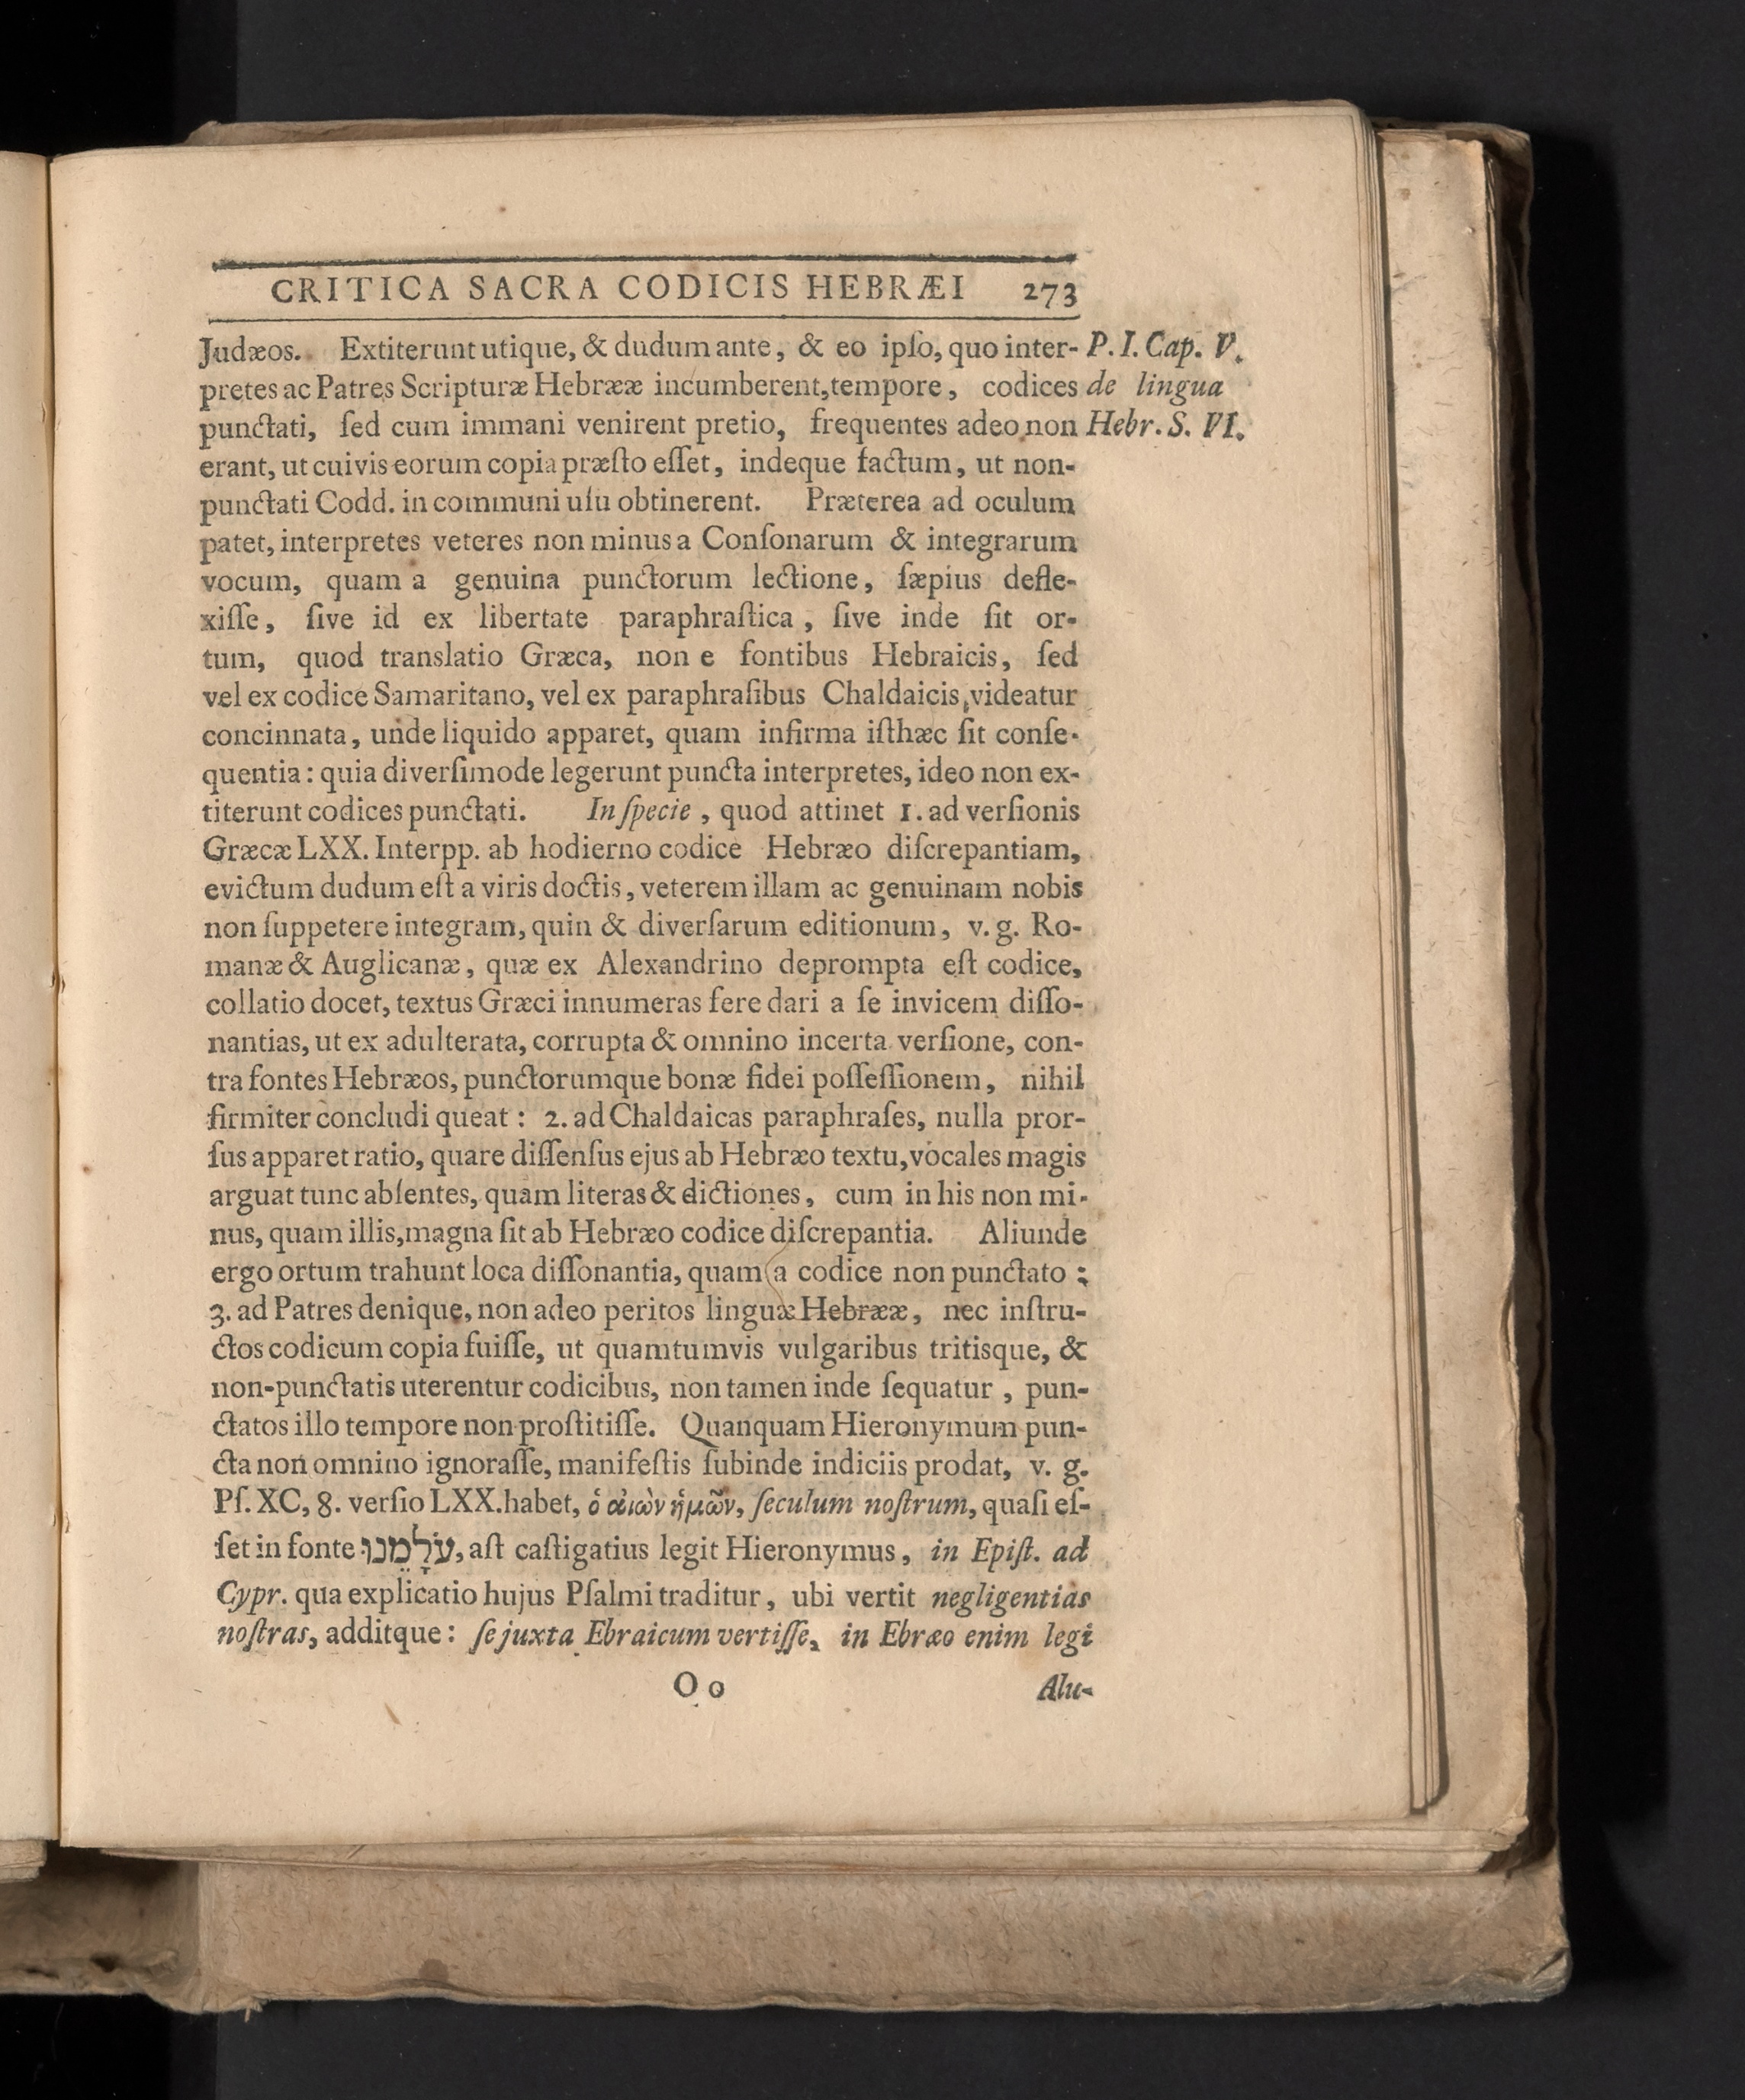 CRITICA SACRA CODICIS HEBRÆI 273
Judæos. Extiterunt utique, & dudum ante, & eo ipſo, quo inter-
pretes ac Patres Scripturæ Hebrææ incumberent, tempore, codices
punctati, ſed cum immani venirent pretio, frequentes adeo non
erant, ut cuivis eorum copia præſto eſſet, indeque factum, ut non-
punctati Codd. in communi uſu obtinerent. Præterea ad oculum
patet, interpretes veteres non minus a Conſonarum & integrarum
vocum, quam a genuina punctorum lectione, ſæpius defle-
xiſſe, ſive id ex libertate paraphraſtica, ſive inde ſit or-
tum, quod translatio Græca, non e fontibus Hebraicis, ſed
vel ex codice Samaritano, vel ex paraphraſibus Chaldaicis, videatur
concinnata, unde liquido apparet, quam infirma iſthæc ſit conſe-
quentia: quia diverſimode legerunt puncta interpretes, ideo non ex-
titerunt codices punctati. In ſpecie, quod attinet 1. ad verſionis
Græcæ LXX. Interpp. ab hodierno codice Hebræo diſcrepantiam,
evictum dudum eſt a viris doctis, veterem illam ac genuinam nobis
non ſuppetere integram, quin & diverſarum editionum, v. g. Ro-
manæ & Auglicanæ, quæ ex Alexandrino deprompta eſt codice,
collatio docet, textus Græci innumeras fere dari a ſe invicem diſſo-
nantias, ut ex adulterata, corrupta & omnino incerta verſione, con-
tra fontes Hebræos, punctorumque bonæ fidei poſſeſſionem, nihil
firmiter concludi queat: 2. ad Chaldaicas paraphraſes, nulla pror-
ſus apparet ratio, quare diſſenſus ejus ab Hebræo textu, vocales magis
arguat tunc abſentes, quam literas & dictiones, cum in his non mi-
nus, quam illis, magna ſit ab Hebræo codice diſcrepantia. Aliunde
ergo ortum trahunt loca diſſonantia, quam a codice non punctato;
3. ad Patres denique, non adeo peritos linguæ Hebrææ, nec inſtru-
ctos codicum copia fuiſſe, ut quamtumvis vulgaribus tritisque, &
non-punctatis uterentur codicibus, non tamen inde ſequatur, pun-
ctatos illo tempore non proſtitiſſe. Quanquam Hieronymum pun-
cta non omnino ignoraſſe, manifeſtis ſubinde indiciis prodat, v. g.
Pſ. XC, 8. verſio LXX. habet, ὁ αἰὼν ἡμῶν, ſeculum noſtrum, quaſi eſ-
ſet in fonte עֹלָמֵנוּ, aſt caſtigatius legit Hieronymus, in Epiſt. ad
Cypr. qua explicatio hujus Pſalmi traditur, ubi vertit negligentias
noſtras, additque: ſe juxta Ebraicum vertiſſe, in Ebræo enim legi
O o Alu-
P. I. Cap. V.
de lingua
Hebr. S. VI.